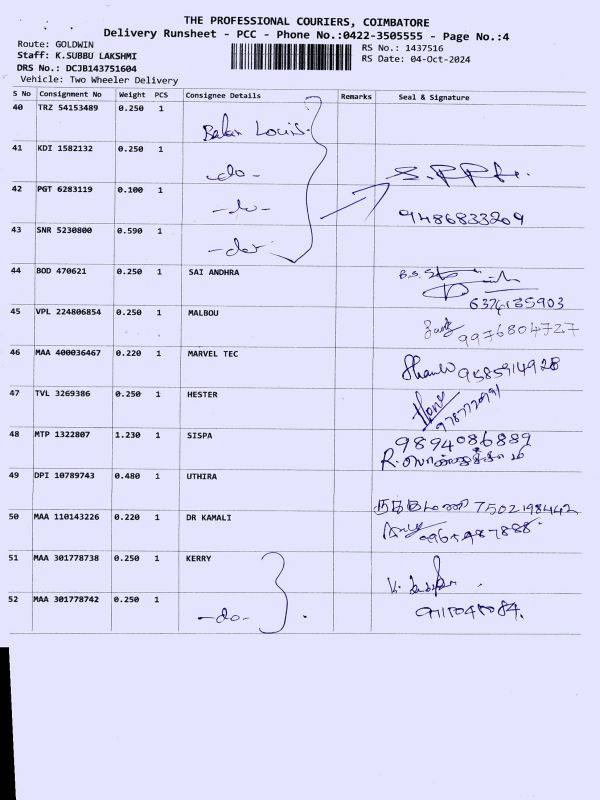 THE PROFESSIONAL COURIERS, COIMBATORE
Delivery Runsheet - PCC - Phone No.:0422-3505555 - Page No.:4
Route: GOLDWIN
RS No.: 1437516
Staff: K.SUBBU LAKSHMI
RS Date: 04-Oct-2024
DRS No.: DCJB143751604
Vehicle: Two Wheeler Delivery
S No Consignment No Weight PCS Consignee Details Remarks Seal & Signature
40 TRZ 54153489 0.250 1
Louis
41 KDI 1582132 0.250 1
-do-
42 PGT 6283119 0.100 1
9486833209
43 SNR 5230800 0.590 1
44 BOD 470621 0.250 1 SAI ANDHRA
B.S.
6374135903
45 VPL 224806854 0.250 1 MALBOU
9976804727
46 MAA 400036467 0.220 1 MARVEL TEC
9585914928
47 TVL 3269386 0.250 1 HESTER
48 MTP 1322807 1.230 1 SISPA
9894086889
49 DPI 10789743 0.480 1 UTHIRA
7502198442
50 MAA 110143226 0.220 1 DR KAMALI
51 MAA 301778738 0.250 1 KERRY
52 MAA 301778742 0.250 1
-do-